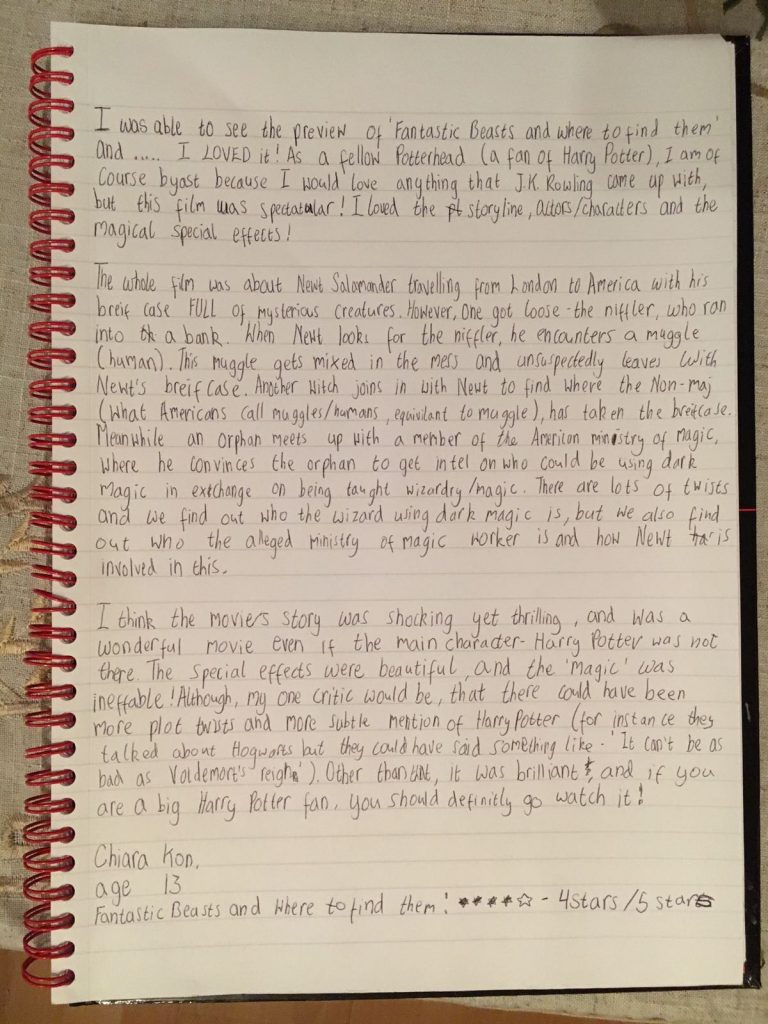 I was able to see the preview of 'Fantastic Beasts and where to find them'
and ..... I LOVED it! As a fellow Potterhead (a fan of Harry Potter), I am of
course byast because I would love anything that J.K. Rowling came up with,
but this film was spectatular! I loved the storyline, actors/characters and the
magical special effects!
The whole film was about Newt Salamander travelling from London to America with his
breif case FULL of mysterious creatures. However, one got loose - the niffler, who ran
into a bank. When Newt looks for the niffler, he encounters a muggle
(human). This muggle gets mixed in the mess and unsuspectedly leaves with
Newt's breifcase. Another witch joins in with Newt to find where the Non-maj
(what Americans call muggles/humans, equivilant to muggle), has taken the breifcase.
Meanwhile an orphan meets up with a member of the American ministry of magic,
where he convinces the orphan to get intel on who could be using dark
magic in exchange on being taught wizardry/magic. There are lots of twists
and we find out who the wizard using dark magic is, but we also find
out who the alleged ministry of magic worker is and how Newt is
involved in this.
I think the movies story was shocking yet thrilling, and was a
wonderful movie even if the main character - Harry Potter was not
there. The special effects were beautiful, and the 'magic' was
ineffable! Although, my one critic would be, that there could have been
more plot twists and more subtle mention of Harry Potter (for instance they
talked about Hogwarts but they could have said something like - 'It can't be as
bad as Voldemort's reign'). Other than that, it was brilliant, and if you
are a big Harry Potter fan, you should definitly go watch it!
Chiara Kon,
age 13
Fantastic Beasts and where to find them: ★★★★☆ - 4stars/5 stars